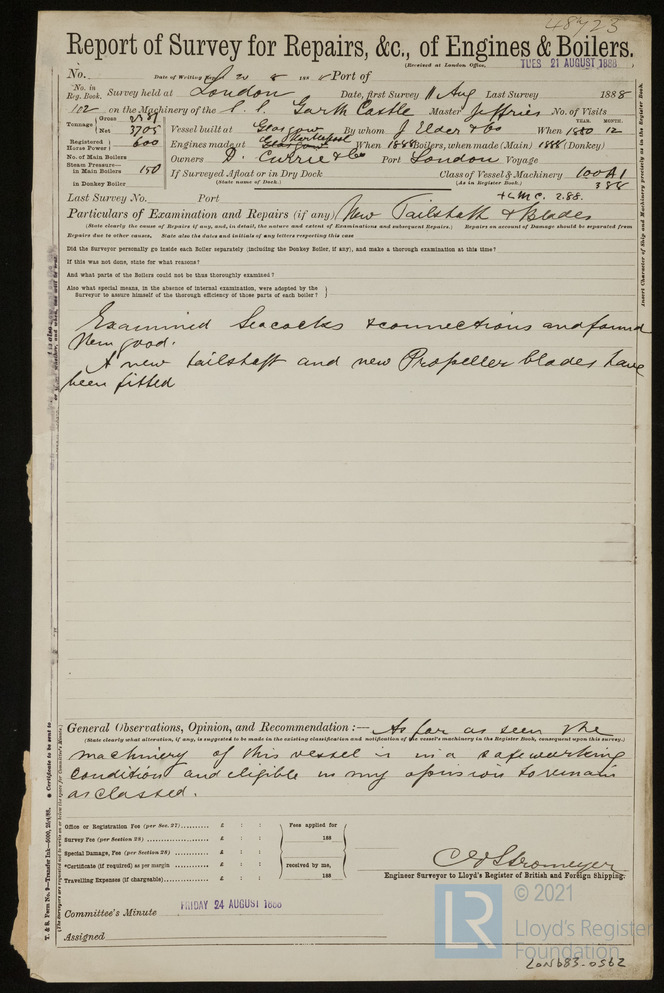 48723
Report of Survey for Repairs, &c., of Engines & Boilers.
(Received at London Office, TUES 21 AUGUST 1888
No. Date of Writing 20 8 188 Port of
No. in Reg. Book. Survey held at London Date, first Survey 11 Aug Last Survey 1888
102 on the Machinery of the S. S. Garth Castle Master Jeffries No. of Visits
Tonnage Gross
Net 3705 Vessel built at Glasgow By whom J Elder & Co When 1880 12 YEAR. MONTH.
Registered Horse Power 600 Engines made at Glasgow Hartlepool When 1888 Boilers, when made (Main) 1888 (Donkey)
No. of Main Boilers Owners D. Currie & Co Port London Voyage
Steam Pressure— in Main Boilers 150 If Surveyed Afloat or in Dry Dock Class of Vessel & Machinery 100A1
in Donkey Boiler (State name of Dock.) (As in Register Book.) 3 88
Last Survey No. Port + LMC. 2.88.
Particulars of Examination and Repairs (if any) New Tailshaft & Blades
(State clearly the cause of Repairs if any, and, in detail, the nature and extent of Examinations and subsequent Repairs.) Repairs on account of Damage should be separated from
Repairs due to other causes. State also the dates and initials of any letters respecting this case
Did the Surveyor personally go inside each Boiler separately (including the Donkey Boiler, if any), and make a thorough examination at this time?
If this was not done, state for what reasons?
And what parts of the Boilers could not be thus thoroughly examined?
Also what special means, in the absence of internal examination, were adopted by the
Surveyor to assure himself of the thorough efficiency of those parts of each boiler?
Examined Seacocks & connections and found
them good.
A new tailshaft and new Propeller blades have
been fitted
General Observations, Opinion, and Recommendation :— As far as seen the
(State clearly what alteration, if any, is suggested to be made in the existing classification and notification of the vessel's machinery in the Register Book, consequent upon this survey.)
machinery of this vessel is in a safe working
condition and eligible in my opinion to remain
as classed.
Office or Registration Fee (per Sec. 27) £ : : Fees applied for
Survey Fee (per Section 28) £ : : 188
Special Damage, Fee (per Section 28) £ : :
*Certificate (if required) as per margin £ : : received by me,
Travelling Expenses (if chargeable) £ : : 188
C E Stromeyer
Engineer Surveyor to Lloyd's Register of British and Foreign Shipping.
Committee's Minute FRIDAY 24 AUGUST 1888
Assigned
Insert Character of Ship and Machinery precisely as in the Register Book.
T. & S. Form No. 9—Transfer Ink—5000, 25/4/88. * Certificate to be sent to
© 2021
LR
Lloyd's Register
Foundation
LON683-0562